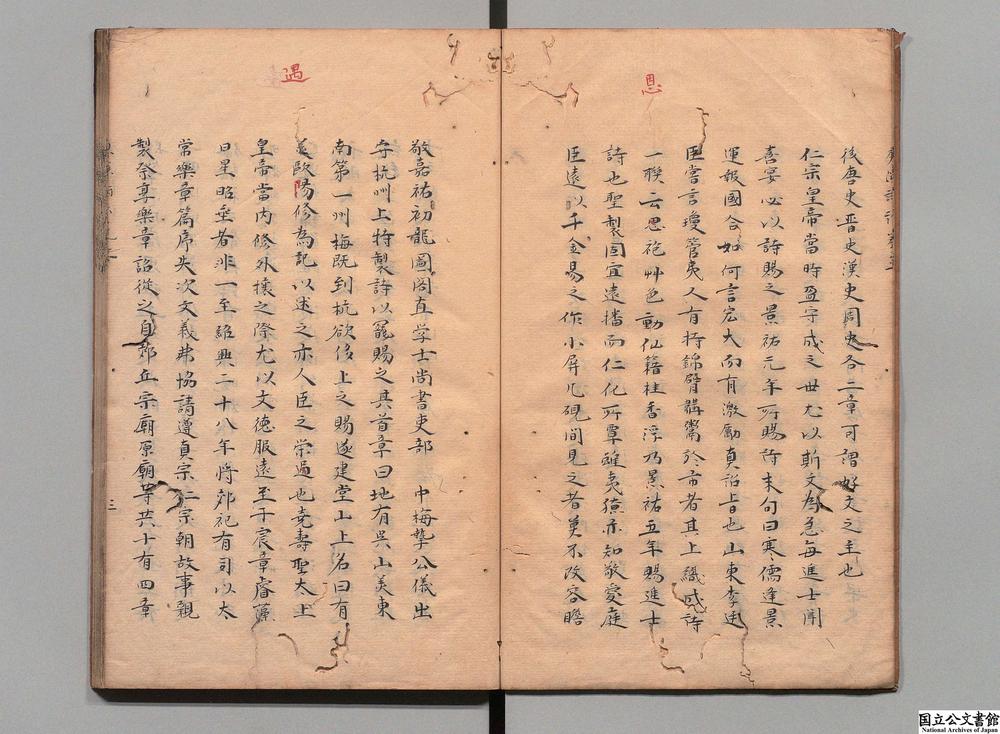 恩
後唐史晋史漢史周史各二章可謂好文之主也
仁宗皇帝當時盈守成之世尤以斯文為急每進士聞
喜宴必以詩賜之景祐元年所賜詩末句曰寒儒逢景
運報國合如何言宏大而有激勵真詔旨也山東李廷
臣嘗言瓊管夷人有持錦臂韝鬻於市者其上織成詩
一聯云恩袍艸色動仙籍桂香浮乃景祐五年賜進士
詩也聖製固宜遠播而仁化所覃雖夷獠亦知敬愛庭
臣遠以千金易之作小屏几硯間見之者莫不改容瞻
遇
敬嘉祐初龍圖閣直学士尚書吏部 中梅摯公儀出
守杭州上特製詩以寵賜之其首章曰地有吳山美東
南第一州梅既到杭欲侈上之賜遂建堂山上名曰有
美歐陽修為記以述之亦人臣之榮遇也堯壽聖太上
皇帝當内修外攘之際尤以文德服遠至于宸章睿藻
日星昭垂者非一至紹興二十八年将郊祀有司以太
常樂章篇序失次文義弗協請遵真宗仁宗朝故事親
製祭享樂章詔從之自郊丘宗廟原廟等共十有四章
三
国立公文書館
National Archives of Japan